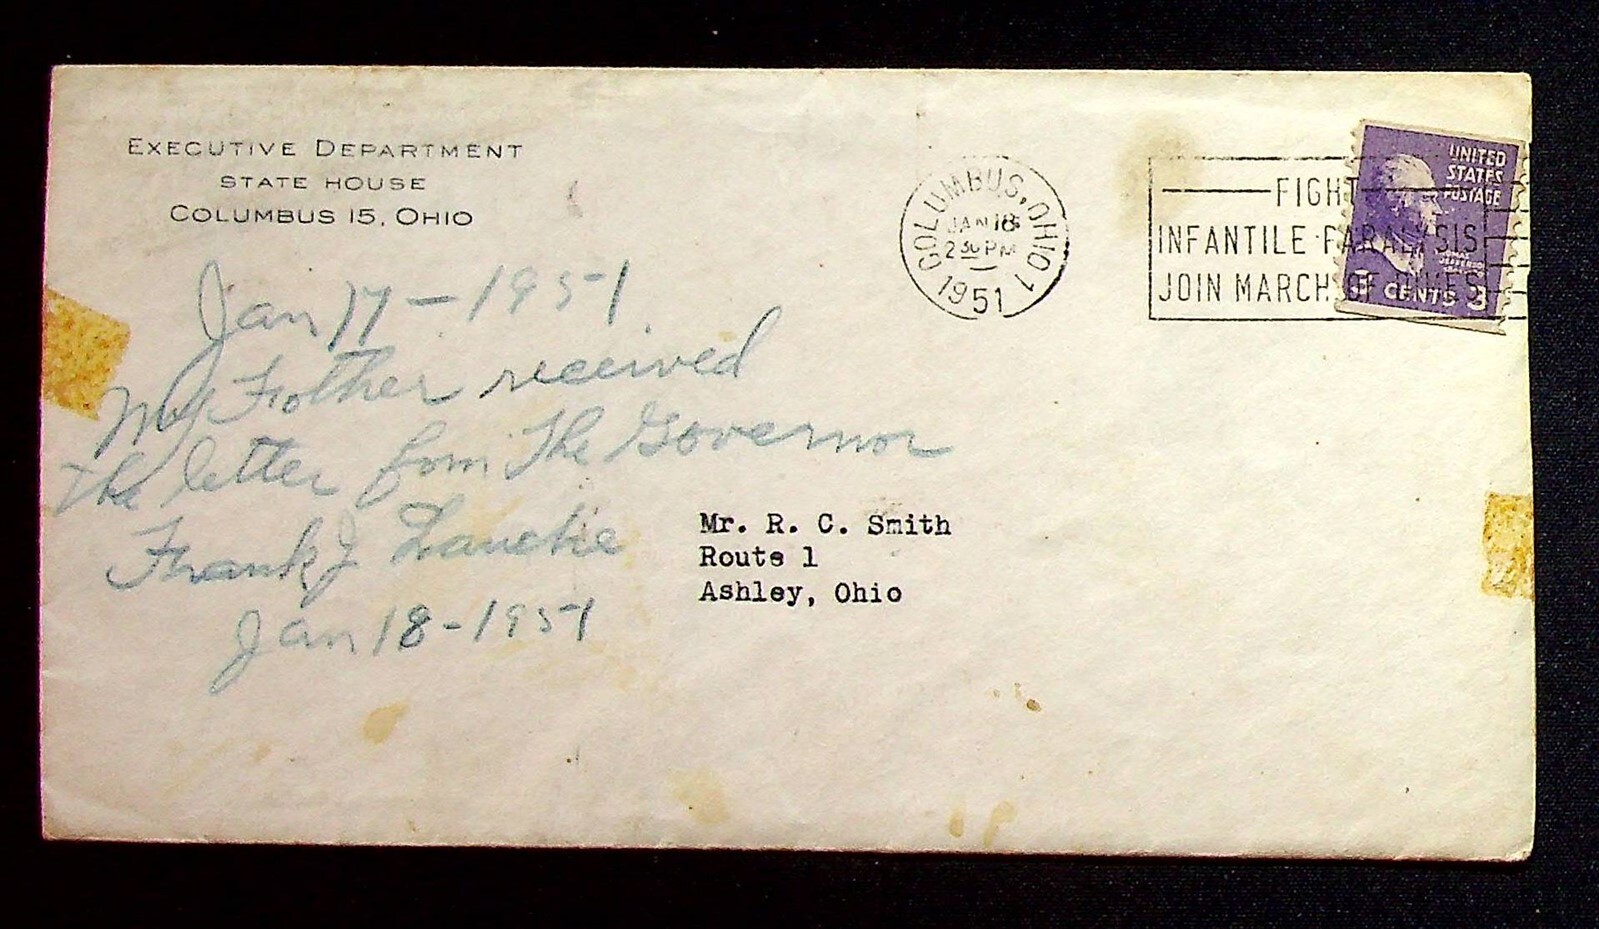 EXECUTIVE DEPARTMENT
STATE HOUSE
COLUMBUS 15, OHIO
COLUMBUS, OHIO 1
JAN 18
2 30 PM
1951
FIGHT
INFANTILE PARALYSIS
JOIN MARCH OF DIMES
UNITED
STATES
POSTAGE
3 CENTS 3
Jan 17 - 1951
My Father received
the letter from The Governor
Frank J Lauche
Jan 18 - 1951
Mr. R. C. Smith
Route 1
Ashley, Ohio